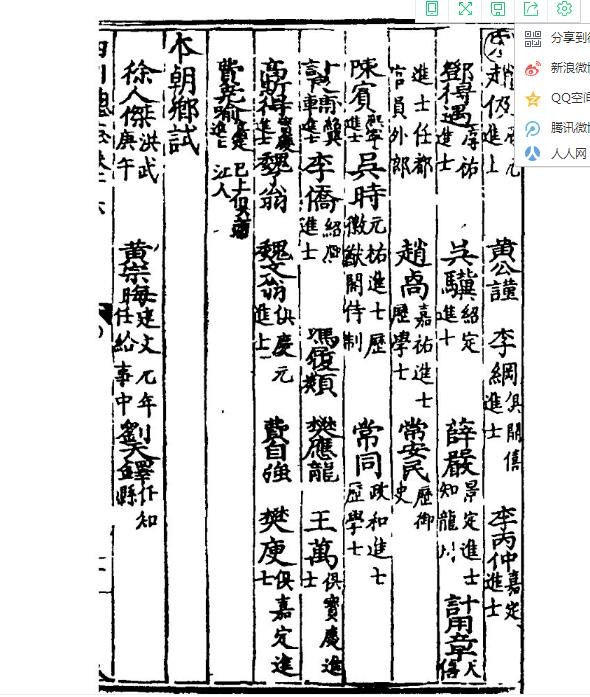 趙伋元進士 黃公謹 李綱俱開僖進士 李丙仲嘉定進士
鄧得遇淳祐進士 吳驥紹定進士 薛嚴景定進士知龍州 計用章天僖
進士任都官員外郎 趙卨嘉祐進士歷學士 常安民歷御史
陳賓熙寧進士 吳時元祐進士歷徽猷閣侍制 常同政和進士歷學士
進士 李僑紹熙進士 馮復類 樊應龍 王萬俱寶慶進士
高斯得進士 魏了翁 魏文翁俱慶元進士 費自強 樊庚俱嘉定進士
費 瑜進士 已上俱蒲江人
本朝鄉試
徐人傑洪武庚午 黃宗晦建文元年任給事中 劉天澤任知縣
分享到
新浪微
QQ空间
腾讯微
人人网